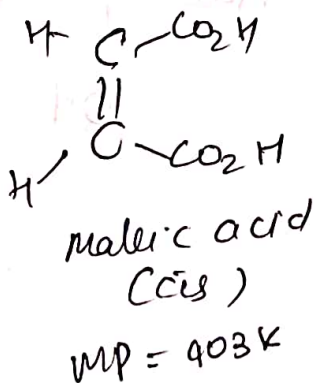 H C CO2H
||
H C CO2H
maleic acid
(cis)
MP = 403K